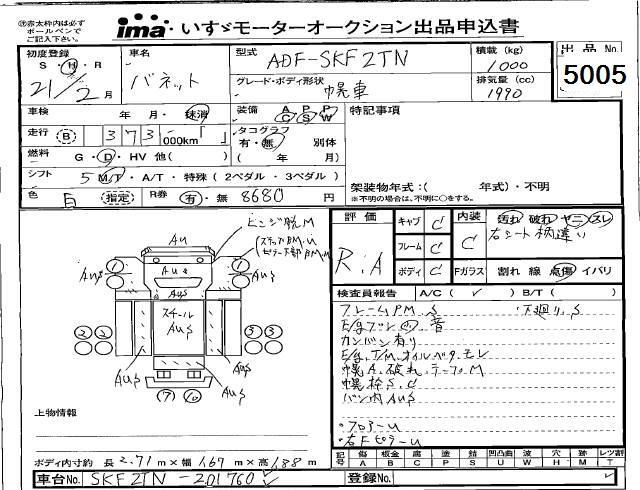 ㊟赤太枠内は必ず
ボールペンで
ご記入下さい。
ima いすゞモーターオークション出品申込書
初度登録
S・H・R
21/2月
車名
バネット
型式
ADF-SKF2TN
グレード・ボディ形状
幌車
積載 (kg)
1000
排気量 (cc)
1990
出品No.
5005
車検 年 月・抹消
装備 A P P C S W
特記事項
走行 B 373,000km「 」
タコグラフ
有・無 別体
( 年 月)
燃料 G・D・HV 他( )
シフト 5 M/T・A/T・特殊(2ペダル・3ペダル)
架装物年式:( 年式)・不明
※不明の場合は、不明に○をする。
色 白 指定 R券 有・無 8680円
評価
R:A
キャブ C
フレーム C
ボディ C
内装 C
汚れ 破れ ヤニ スレ
右シート柄違い
Fガラス 割れ 線 点傷 イバリ
検査員報告 A/C( ✓ ) B/T( )
フレームPM.S 下廻り.S
カンバン有り
E/g.T/M.オイルベタ.モレ
幌A.破れ.テープ.M
幌枠S.C
バン内AuS
・フロアーU
・右FピラーU
ヒンジ脱M
Au
Aus
Aus
AuS
Aus
Aus
スチール
AuS
AuS
AuS
AuS
上物情報
ボディ内寸約 長2.71m×幅1.67m×高1.88m
記号 傷A 板金B 腐C 塗P 錆S 凹凸曲U 波W 穴H 跡M レツ割T
車台No. SKF2TN-201760
登録No.